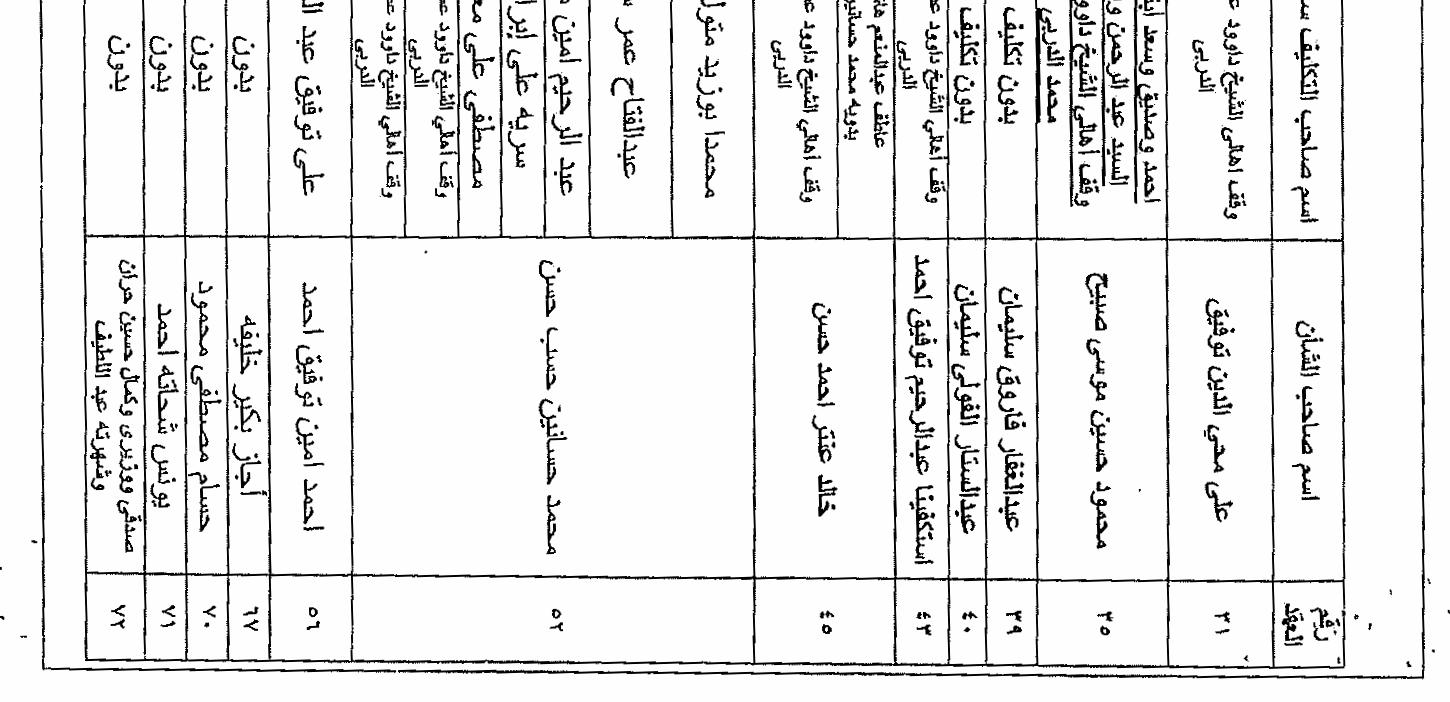 رقم العقد
اسم صاحب الشأن
اسم صاحب التكليف
٣١
على محي الدين توفيق
وقف اهالى الشيخ داوود
الدربى
٣٥
محمود حسين موسى صبيح
احمد وصديق وسعد
السيد عبد الرحمن
وقف اهالى الشيخ داوود
محمد الدربى
٣٩
عبدالغفار فاروق سليمان
بدون تكليف
٤٠
عبدالستار الفولى سليمان
بدون تكليف
٤٣
استكفينا عبدالرحيم توفيق احمد
وقف اهالي الشيخ داوود
الدربى
٤٥
خالد عنتر احمد حسن
عاطف عبدالمنعم
بدويه محمد حسانين
وقف اهالي الشيخ داوود
الدربى
٥٢
محمد حسانين حسب حسن
محمدا بوزيد متولي
عبدالفتاح عمر
عبد الرحيم امين
سريه على
مصطفى على
وقف اهالي الشيخ داوود
الدربى
وقف اهالي الشيخ داوود
الدربى
٥٦
احمد امين توفيق احمد
على توفيق عبد
٦٧
أجاز بكير خليفه
بدون
٧٠
حسام مصطفى محمود
بدون
٧١
يونس شحاته احمد
بدون
٧٢
صدقى ووزيرى وكمال حسين حران
وشهرته عبد اللطيف
بدون